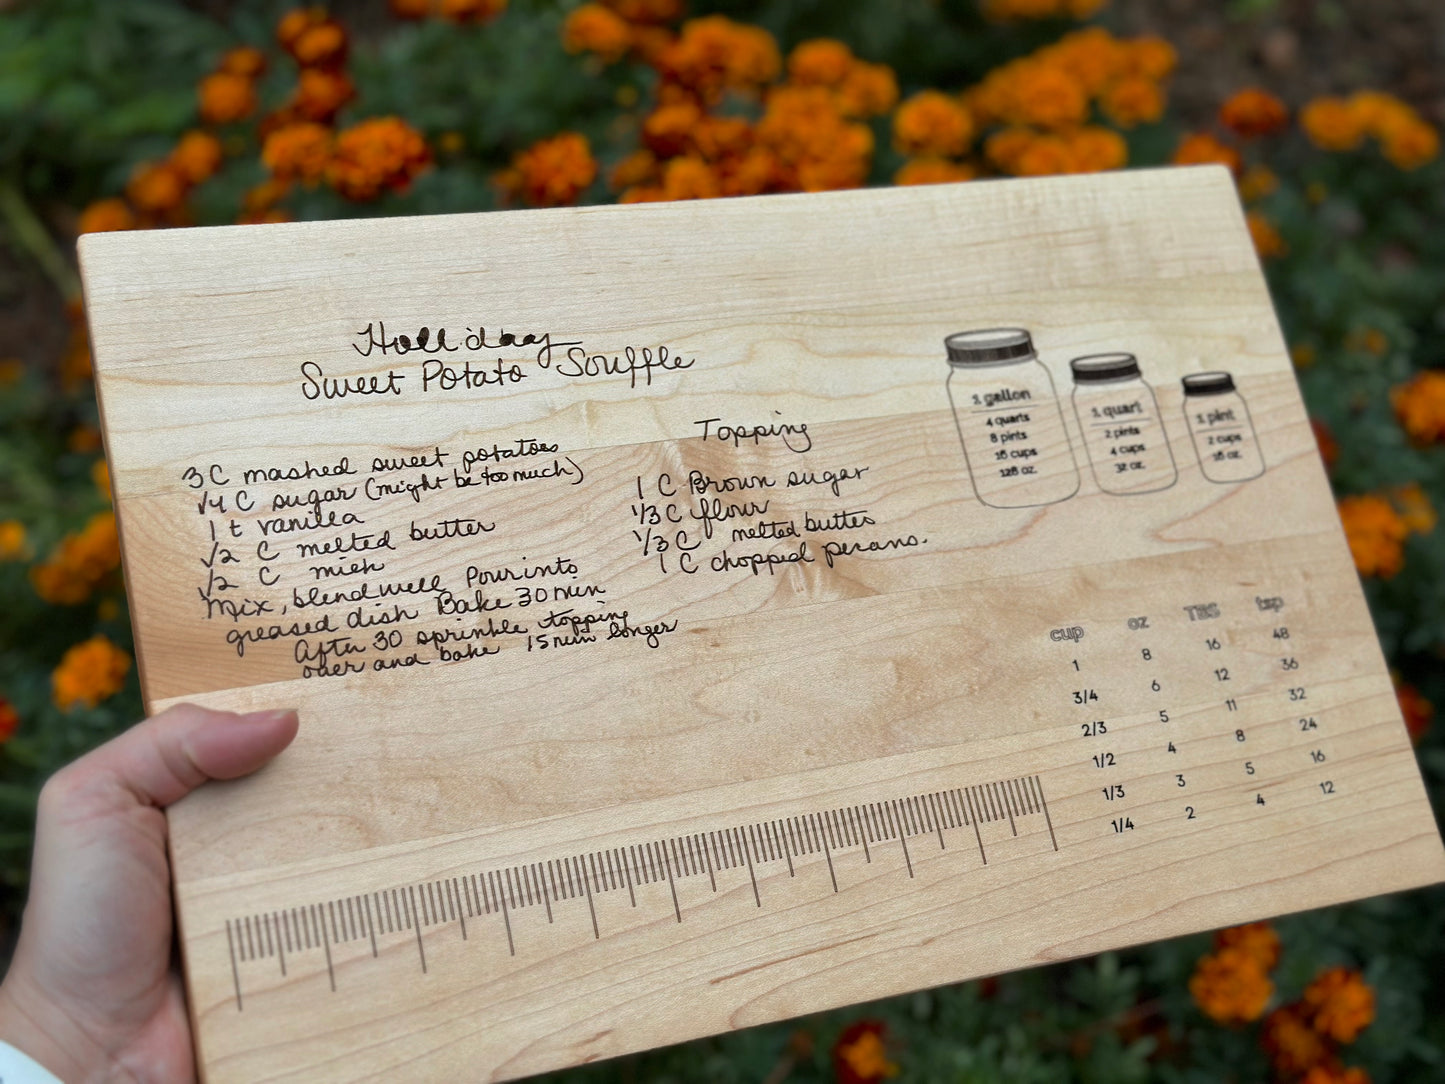 Holliday
Sweet Potato Souffle
3 C mashed sweet potatoes
1/4 C sugar (might be too much)
1 t vanilla
1/2 C melted butter
1/2 C milk
Mix, blend well Pour into
greased dish Bake 30 min
After 30 sprinkle topping
over and bake 15 min longer
Topping
1 C Brown sugar
1/3 C flour
1/3 C melted butter
1 C chopped pecans.
1 gallon
4 quarts
8 pints
16 cups
128 oz.
1 quart
2 pints
4 cups
32 oz.
1 pint
2 cups
16 oz.
cup oz TBS tsp
1 8 16 48
3/4 6 12 36
2/3 5 11 32
1/2 4 8 24
1/3 3 5 16
1/4 2 4 12